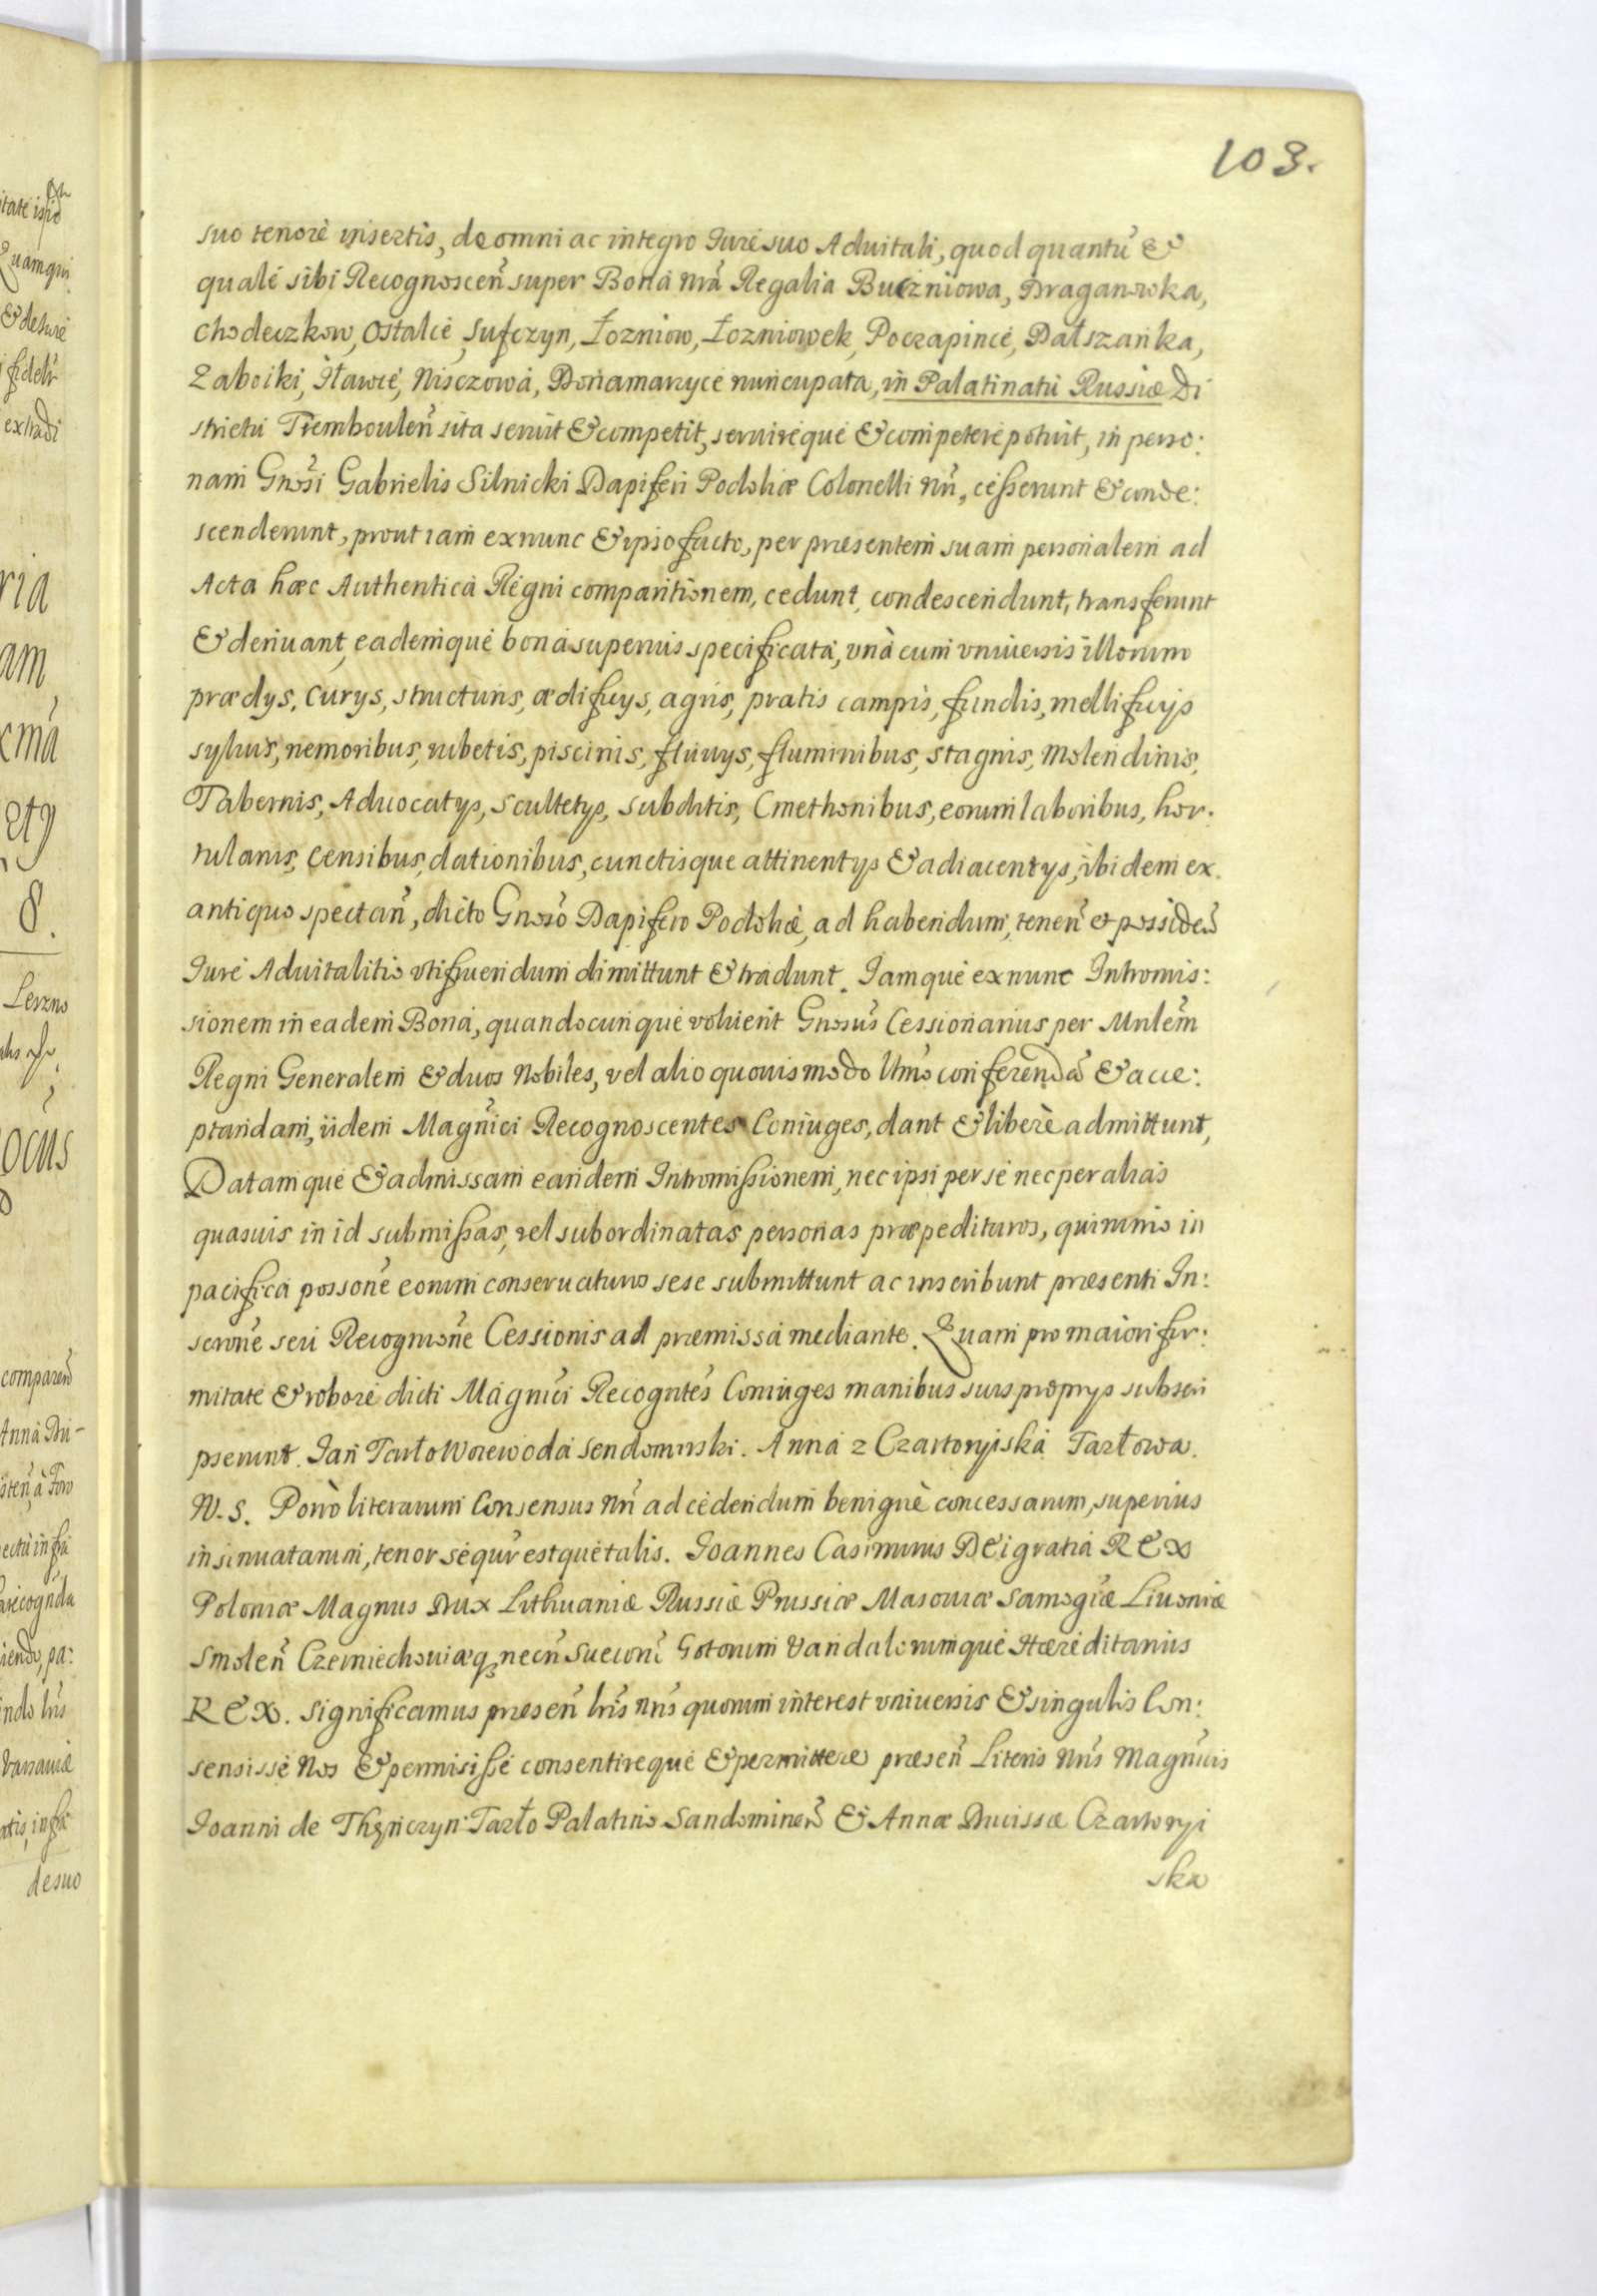 103.
suo tenore insertis, de omni ac integro Iure suo Aduitali, quod quantũ &
quale sibi Recognoscen̄ super Bona nr̄a Regalia Buczniowa, Draganowka,
Chodeczkow, Ostalce, Sufczyn, Łozniow, Łozniowek, Poczapince, Dałszanka,
Zaboiki, Iławce, Nisczowa, Donamaryce nuncupata, in Palatinatu Russiæ Di
strictu Tremboulen̄ sita seruit & competit, seruireque & competere potuit, in perso:
nam Gnosi Gabrielis Silnicki Dapiferi Podoliæ Colonelli nr̄i, cesserunt & conde:
scenderunt, prout iam ex nunc & ipso facto, per præsentem suam personalem ad
Acta hæc Authentica Regni comparitionem, cedunt, condescendunt, transferunt
& deriuant, eademque bona superius specificata, vnà cum vniuersis illorum
prædys, curys, structuris, ædificys, agris, pratis campis, fundis, mellificijs
syluis, nemoribus, rubetis, piscinis, fluuys, fluminibus, stagnis, Molendinis,
Tabernis, Aduocatys, scultetys, subditis, Cmethonibus, eorum laboribus, hor.
tulanis, censibus, dationibus, cunctisque attinentys & adiacentys, ibidem ex
antiquo spectan̄, dicto Gnoso Dapifero Podoliæ, ad habendum, tenen̄ et possiden̄
Iure Aduitalitio vtifruendum dimittunt & tradunt. Iamque ex nunc Intromis:
sionem in eadem Bona, quandocunque voluerit Gnosus Cessionarius per Mnlem
Regni Generalem & duos Nobiles, vel alio quouis modo lt̄mo conferendã & acce:
ptandam, iidem Magnici Recognoscentes Coniuges, dant & liberè admittunt,
Datamque & admissam eandem Intromissionem, nec ipsi per se nec per alias
quasuis in id submissas, vel subordinatas personas præpedituros, quinimo in
pacifica possone eorum conseruaturos sese submittunt ac inscribunt præsenti In:
scrone seu Recognone Cessionis ad præmissa mediante. Quam pro maiori fir:
mitate & robore dicti Magnici Recogntes Coniuges manibus suis proprys subscri
pserunt. Ian Tarło Woiewoda Sendomirski. Anna z Czartoryiska Tarłowa.
N. S. Porrò literarum Consensus nr̄i ad cedendum benignè concessarum, superius
insinuatarum, tenor sequr estque talis. Joannes Casimirus Dei gratia REX
Poloniæ Magnus Dux Lithuaniæ Russiæ Prussiæ Masouiæ Samogiæ Liuoniæ
Smolen̄ Czerniechouiæq₃ necn̄ Suecorũ Gotorum Vandalorumque Hæreditarius
REX. Significamus præsen̄ lrīs nrīs quorum interest vniuersis & singulis Con:
sensisse Nos & permisisse consentireque & permittere præsen̄ Literis Nrīs Magnicis
Joanni de Thęnczyn Tarło Palatino Sandomirien̄ & Annæ Ducissæ Czartoryi
ska